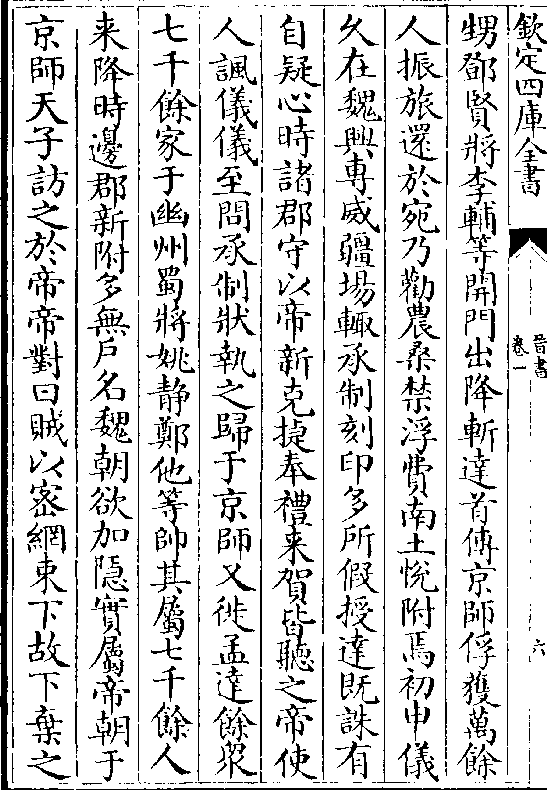 欽定四庫全書
晉書
卷一
六
甥鄧賢將李輔等開門出降斬達首傳京師俘獲萬餘
人振旅還於宛乃勸農桑禁浮費南土悅附焉初申儀
久在魏興專威疆場輙承制刻印多所假授達既誅有
自疑心時諸郡守以帝新克捷奉禮来賀皆聽之帝使
人諷儀儀至問承制狀執之歸于京師又徙孟達餘衆
七千餘家于幽州蜀將姚静鄭他等帥其屬七千餘人
来降時邊郡新附多無戶名魏朝欲加隱實屬帝朝于
京師天子訪之於帝帝對曰賊以宻網束下故下棄之